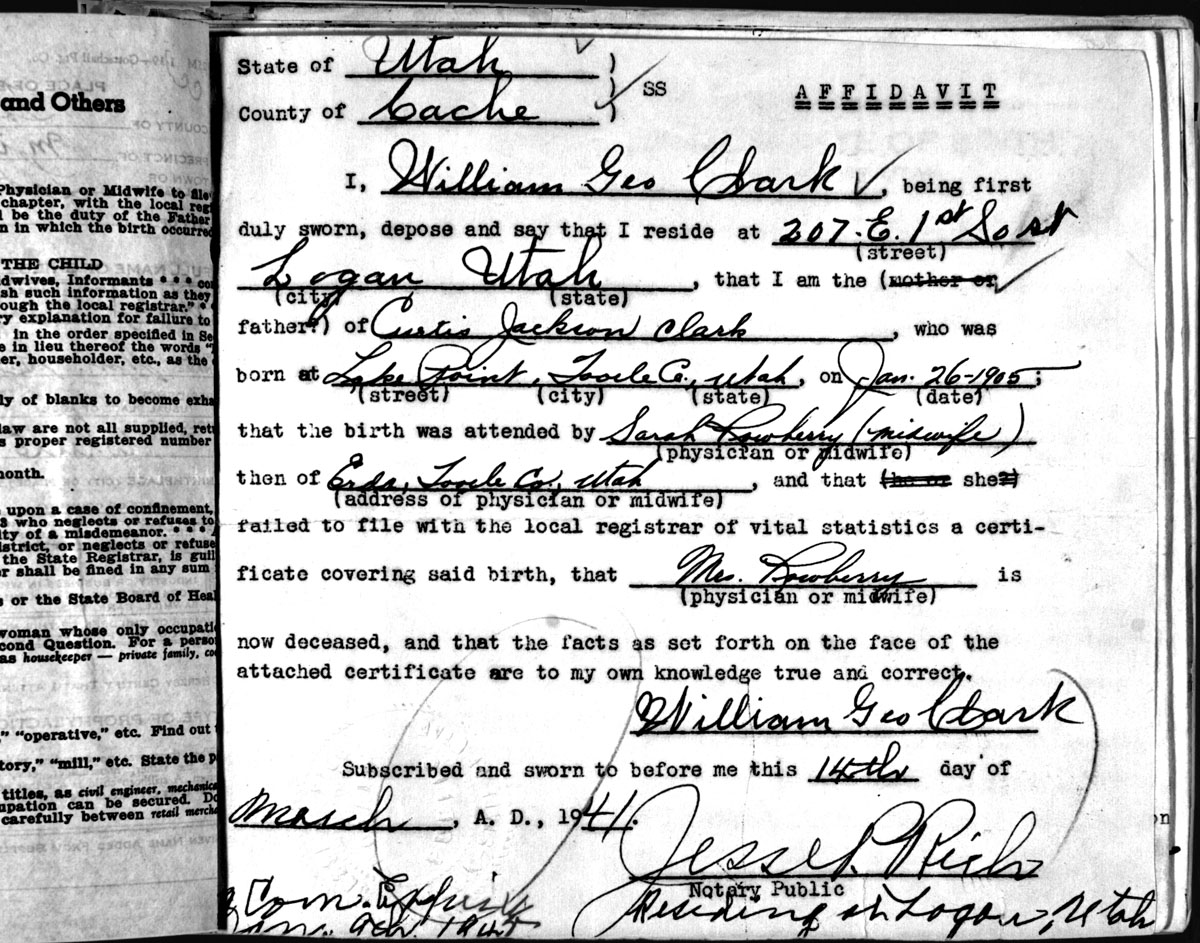 and Others
Physician or Midwife to file
chapter, with the local reg
l be the duty of the Father
n in which the birth occurred
THE CHILD
dwives, Informants * * * con
sh such information as they
ough the local registrar." *
ry explanation for failure to
in the order specified in Se
e in lieu thereof the words "
er, householder, etc., as the
ly of blanks to become exha
law are not all supplied, retu
s proper registered number
month.
upon a case of confinement,
s who neglects or refuses to
ity of a misdemeanor. * * *
istrict, or neglects or refuse
the State Registrar, is guil
r shall be fined in any sum
s or the State Board of Heal
woman whose only occupati
cond Question. For a person
as housekeeper — private family, co
" "operative," etc. Find out
tory," "mill," etc. State the p
titles, as civil engineer, mechanic
upation can be secured. Do
carefully between retail merch
State of Utah )
County of Cache ) SS
AFFIDAVIT
I, William Geo Clark, being first
duly sworn, depose and say that I reside at 207. E. 1st So st
(street)
Logan Utah, that I am the (mother or
(city) (state)
father) of Curtis Jackson Clark, who was
born at Lake Point, Tooele Co., Utah, on Jan. 26-1905;
(street) (city) (state) (date)
that the birth was attended by Sarah Rowberry (midwife)
(physician or midwife)
then of Erda, Tooele Co., Utah, and that (he or she)
(address of physician or midwife)
failed to file with the local registrar of vital statistics a certi-
ficate covering said birth, that Mrs. Rowberry is
(physician or midwife)
now deceased, and that the facts as set forth on the face of the
attached certificate are to my own knowledge true and correct.
William Geo Clark
Subscribed and sworn to before me this 14th day of
March, A. D., 1941.
Jesse P. Rich
Notary Public
Com. Expires
Residing at Logan, Utah